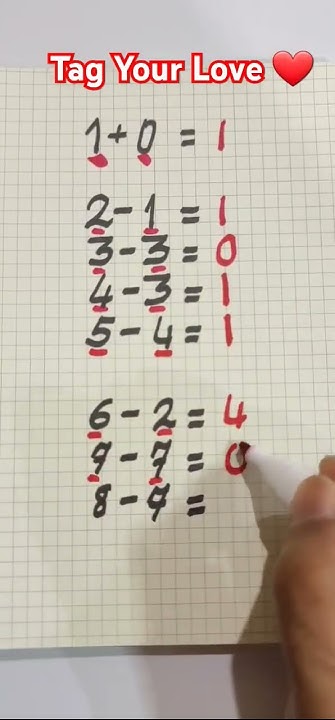 Tag Your Love ❤️
1 + 0 = 1
2 - 1 = 1
3 - 3 = 0
4 - 3 = 1
5 - 4 = 1
6 - 2 = 4
7 - 7 = 0
8 - 7 =